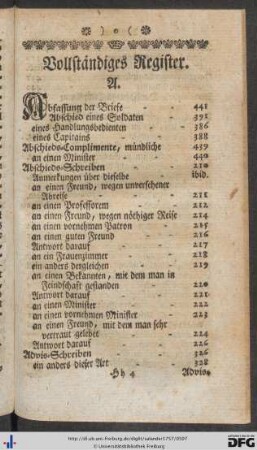 ) o (
Vollständiges Register.
A.
Abfassung der Briefe - - 441
Abschied eines Soldaten - 391
eines Handlungsbedienten - 386
eines Capitains - - 388
Abschieds-Complimente, mündliche 439
an einen Minister - - 440
Abschieds-Schreiben - - 210
Anmerkungen über dieselbe ibid.
an einen Freund, wegen unversehener
Abreise - - 211
an einen Professorem - 212
an einen Freund, wegen nöthiger Reise 214
an einen vornehmen Patron - 215
an einen guten Freund - 216
Antwort darauf - - 217
an ein Frauenzimmer - 218
ein anders dergleichen - 219
an einen Bekannten, mit dem man in
Feindschaft gestanden - 220
Antwort darauf - - 221
an einen Minister - - 222
an einen vornehmen Minister - 223
an einen Freund, mit dem man sehr
vertraut gelebet - - 224
Antwort darauf - - 226
Advis-Schreiben - - 326
ein anders dieser Art - 328
Hh 4 Advis-
http://dl.ub.uni-freiburg.de/diglit/
© Universitätsbibliothek Freiburg
Gefördert durch die
DFG